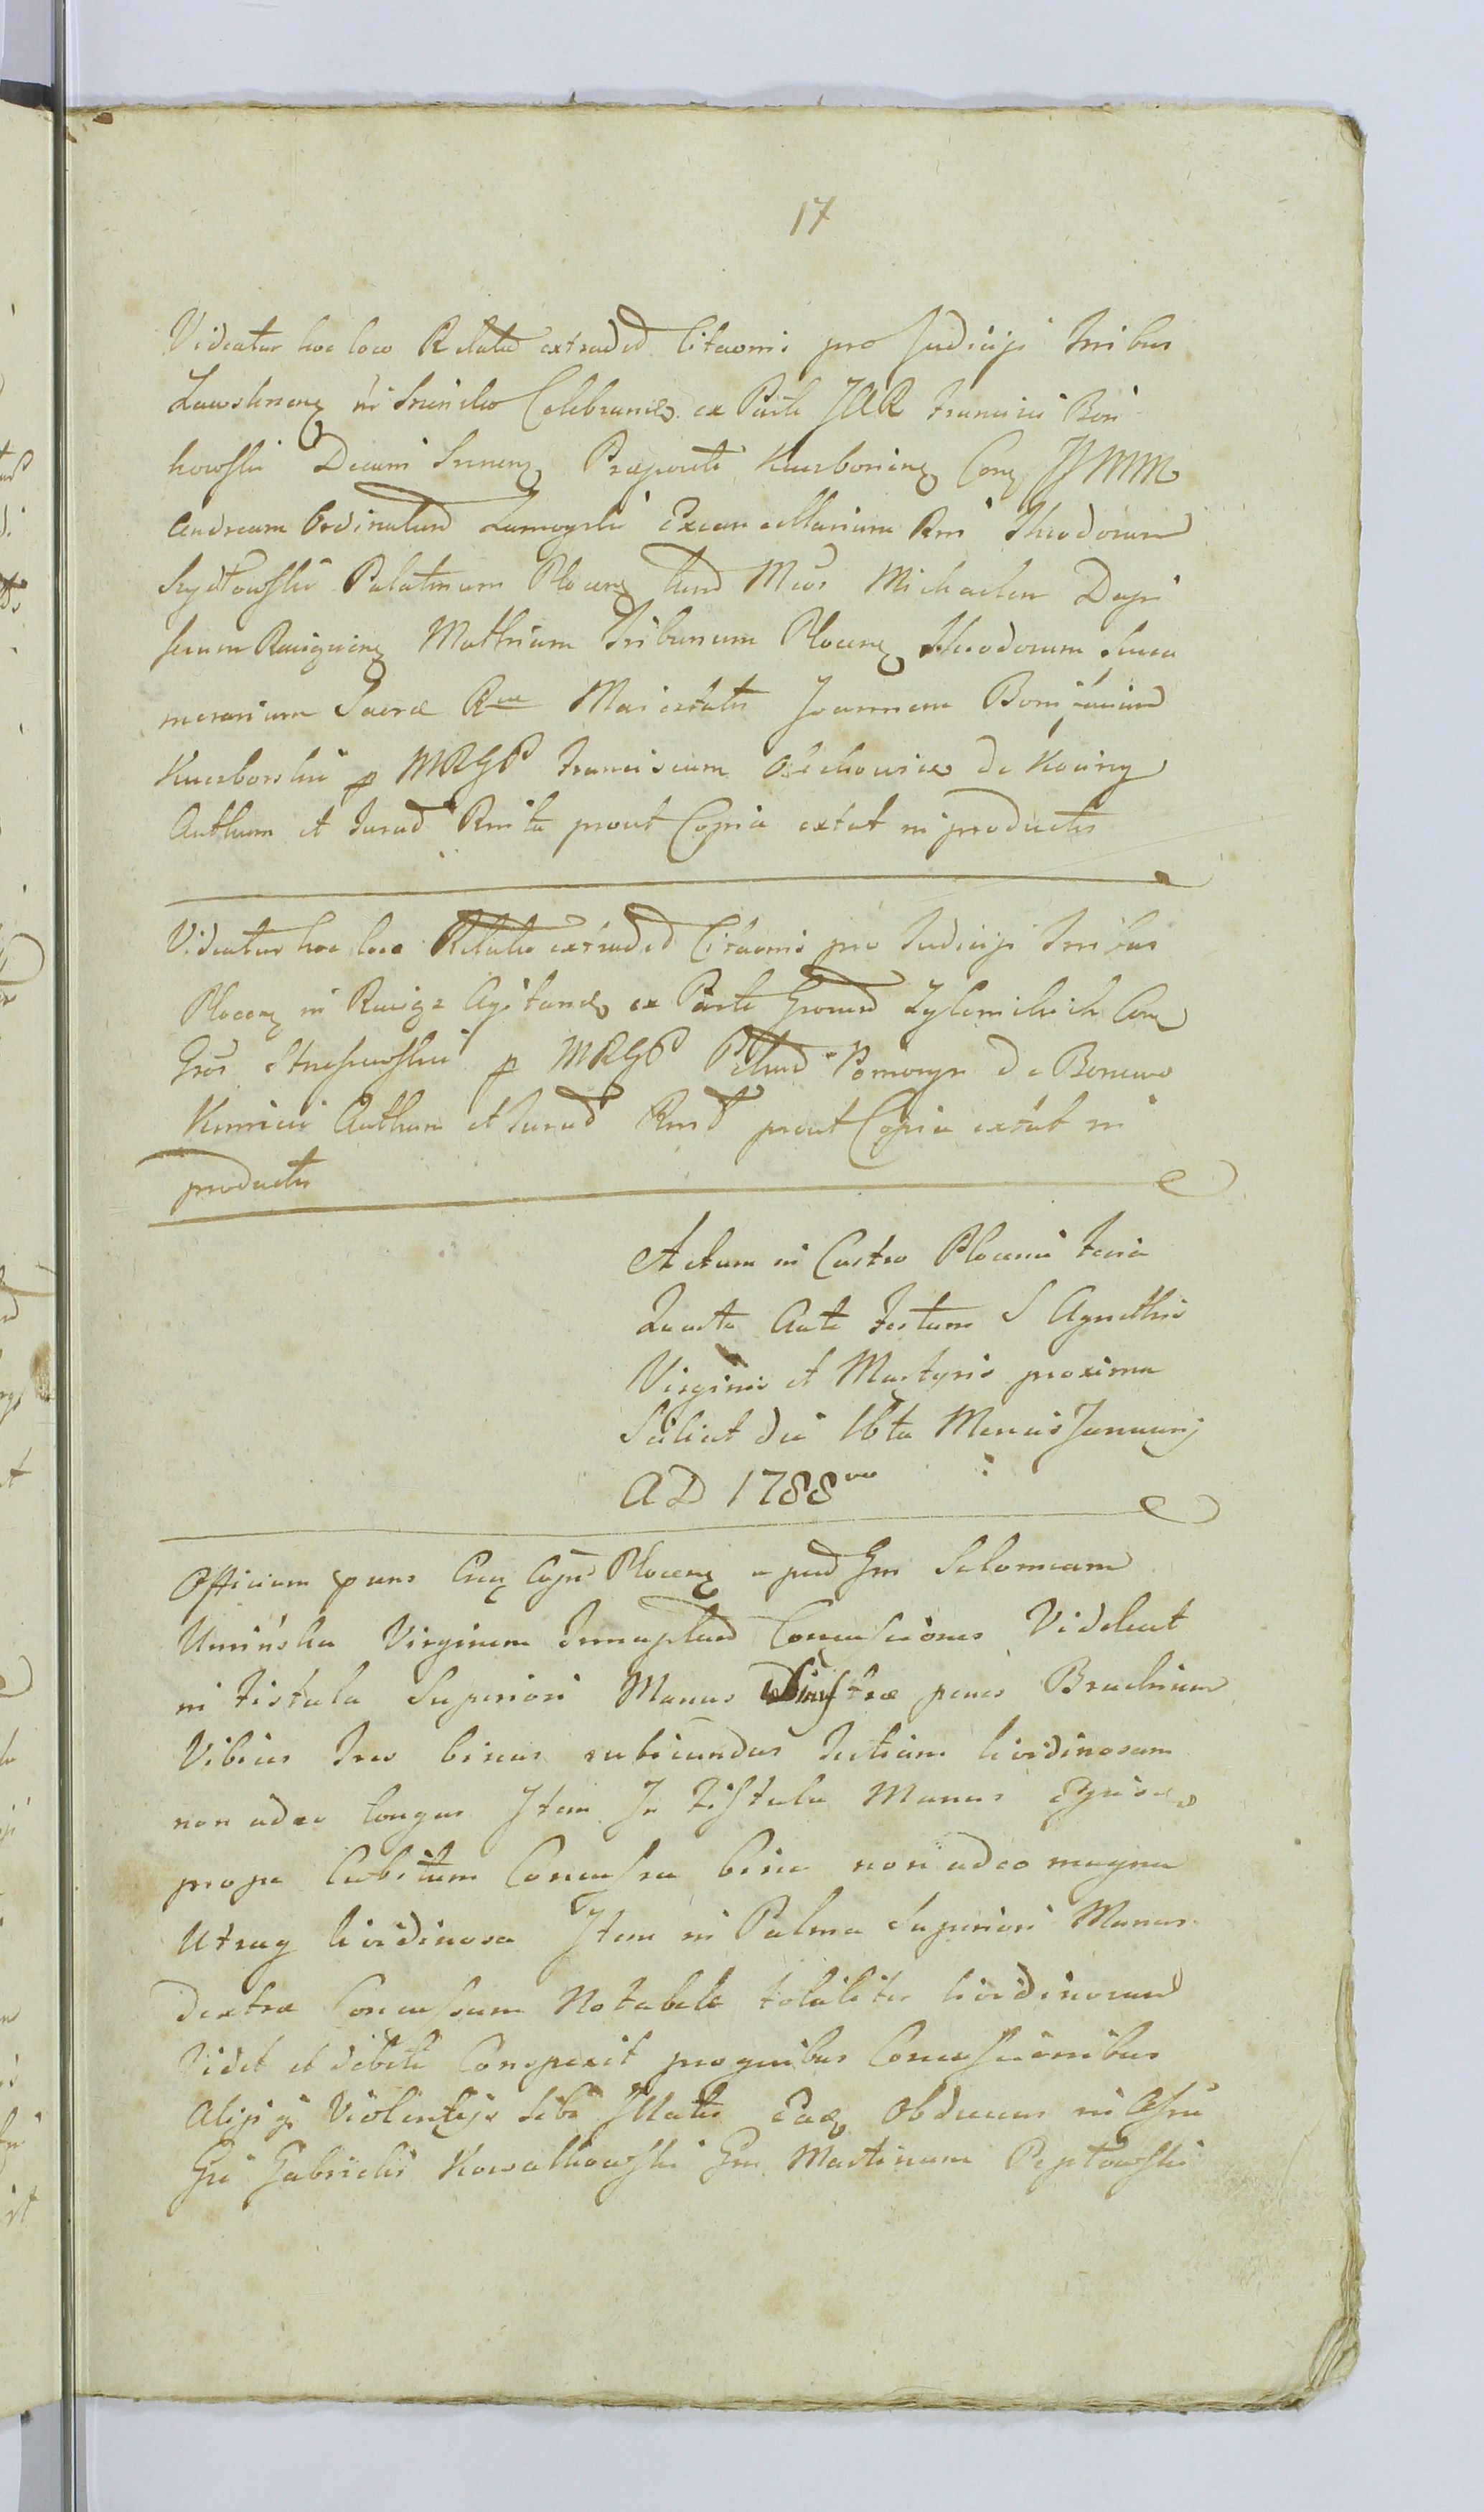 17
Videatur hoc loco Relatio extraded Citaonis pro Judicijs Tribus
Zawskrnens in Srensko Celebrandis ex Parte JAR Francisci Bori
kowski Decani Srnens Praepositi Kuczborinens Cons JJMM
Andream Ordinatum Zamoyski Excancellarium Rni Theodorum
Szydłowski Palatinum Plocens tum Mcos Michaelem Dapi
ferum Racigiens Mathiam Tribunum Plocens Theodorum Succa
merarium Sacrae Rae Maiestatis Joannem Bonif
Kuczborski p MRGP Franciscum de
Authum et Jurad Rnita prout Copia extat in productis
Videatur hoc loco Relatio extraded Citaonis pro Judicijs Terribus
Plocens in Raciąż Agitandis ex Parte Grorum Cons
Gros p MRGP Petrum Pomorzn de Boncwo
Kmieci Authum et Jurad Rnd prout Copia extat in
productis
Actum in Castro Plocensi Feria
Quarta Ante Festum S Agnethis
Virginis et Martyris proxima
Scilicet die 16ta Mensis Januarij
AD 1788vo
Officium puns Cap Plocens apud Gm Salomeam
Umińska Virginem Innuptam Concussiones Videlicet
in Fistula Superiori Manus Sinistrae penes Brachium
Vibices tres binas rubicundas tertiam lividinosam
non adeo longas Item In Fistula Manus
prope Cubitum Concussa bina non adeo magna
Utraq lividinosa Item in Palma Superiori Manus
dextrae Concussum Notabile totaliter lividinosum
Vidit et debite Conspexit pro quibus Concussionibus
Alijs qz Violentijs Sibi Illatis Eadem obducens in Assa
Gsi Gabrielis Kowalkowski Gm Martinum Peptowski